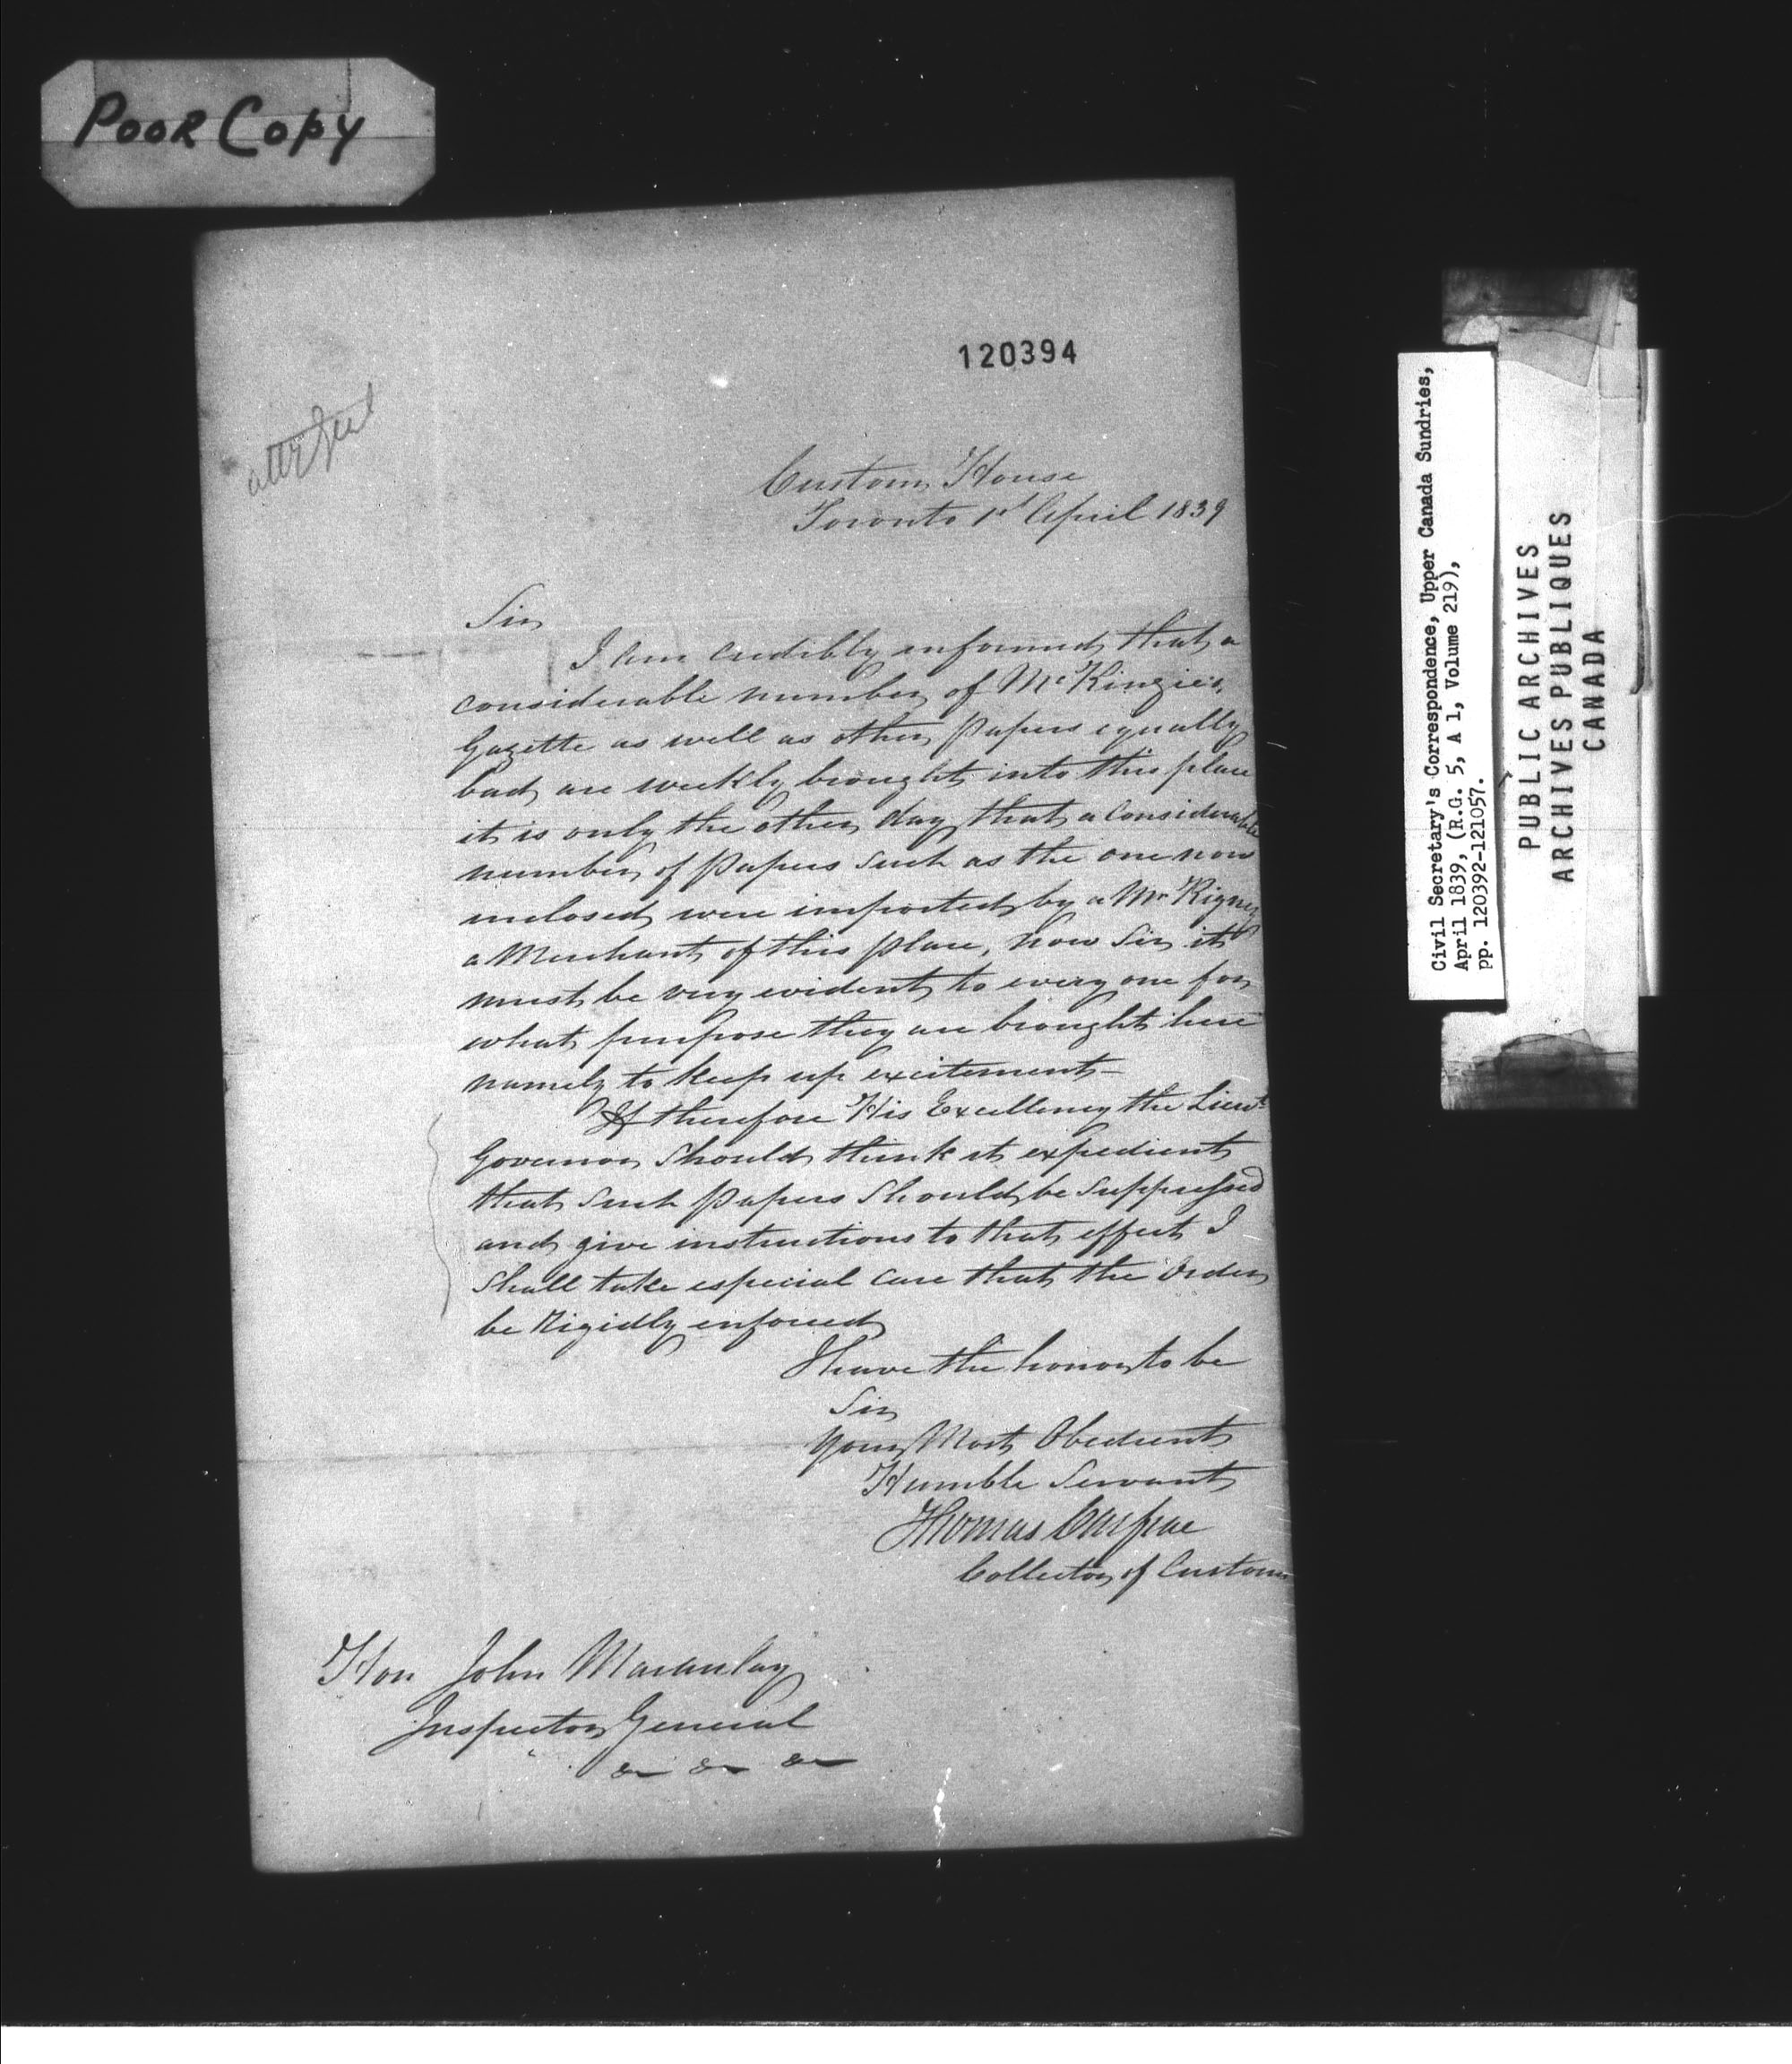 Poor Copy
120394
Custom House
Toronto 1st April 1839
Sir
I am credibly informed that a
considerable number of McKinzies
Gazette as well as other Papers equally
bad are weekly brought into this place
it is only the other day that a considerable
number of Papers such as the one now
inclosed were imported by a Mr Rigney
a Merchant of this place, now Sir it
must be very evident to every one for
what purpose they are brought here
namely to keep up excitement—
If therefore His Excellency the Lieut
Governor should think it expedient
that such Papers should be suppressed
and give instructions to that effect I
shall take especial care that the Order
be Rigidly enforced
I have the honor to be
Sir
Your Most Obedient
Humble Servant
Thomas Carfrae
Collector of Customs
Hon John Macaulay
Inspector General
&c &c &c
Civil Secretary's Correspondence, Upper Canada Sundries,
April 1839, (R.G. 5, A 1, Volume 219),
pp. 120392-121057.
PUBLIC ARCHIVES
ARCHIVES PUBLIQUES
CANADA